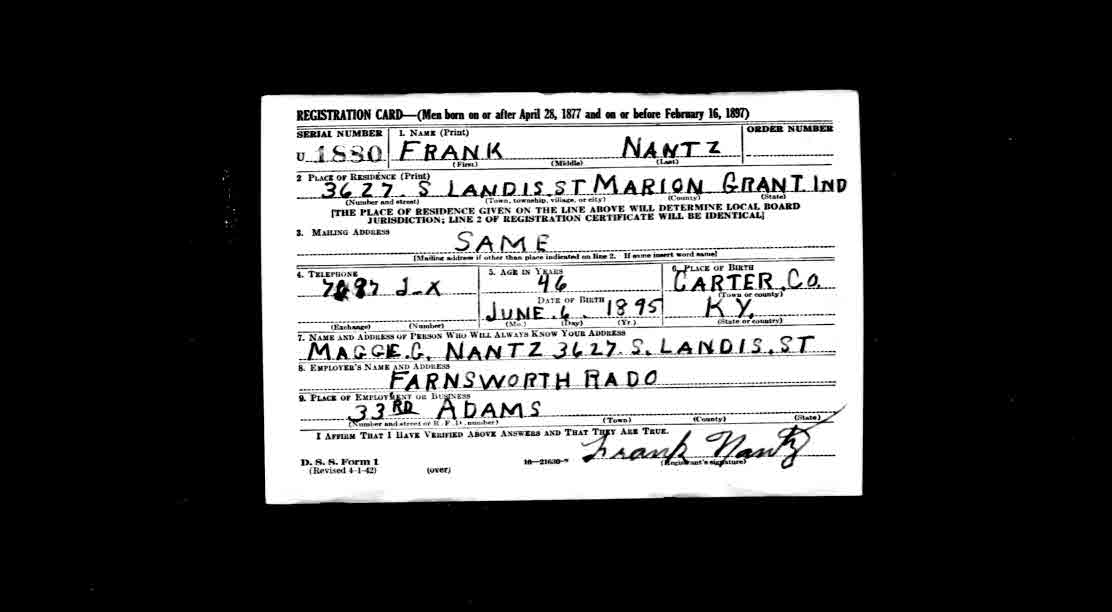 REGISTRATION CARD—(Men born on or after April 28, 1877 and on or before February 16, 1897)
SERIAL NUMBER 1. NAME (Print) ORDER NUMBER
U 1880 FRANK NANTZ
(First) (Middle) (Last)
2 PLACE OF RESIDENCE (Print)
3627. S LANDIS. ST MARION GRANT IND
(Number and street) (Town, township, village, or city) (County) (State)
[THE PLACE OF RESIDENCE GIVEN ON THE LINE ABOVE WILL DETERMINE LOCAL BOARD
JURISDICTION; LINE 2 OF REGISTRATION CERTIFICATE WILL BE IDENTICAL]
3. MAILING ADDRESS
SAME
[Mailing address if other than place indicated on line 2. If same insert word same]
4. TELEPHONE 5. AGE IN YEARS 6. PLACE OF BIRTH
46 CARTER. CO.
(Town or county)
DATE OF BIRTH
JUNE. 6. 1895 KY.
(Exchange) (Number) (Mo.) (Day) (Yr.) (State or country)
7. NAME AND ADDRESS OF PERSON WHO WILL ALWAYS KNOW YOUR ADDRESS
MAGGIE. C. NANTZ 3627. S. LANDIS. ST
8. EMPLOYER'S NAME AND ADDRESS
FARNSWORTH RADO
9. PLACE OF EMPLOYMENT OR BUSINESS
33RD ADAMS
(Number and street or R. F. D. number) (Town) (County) (State)
I AFFIRM THAT I HAVE VERIFIED ABOVE ANSWERS AND THAT THEY ARE TRUE.
Frank Nantz
D. S. S. Form 1 16—21630-2 (Registrant's signature)
(Revised 4-1-42) (over)